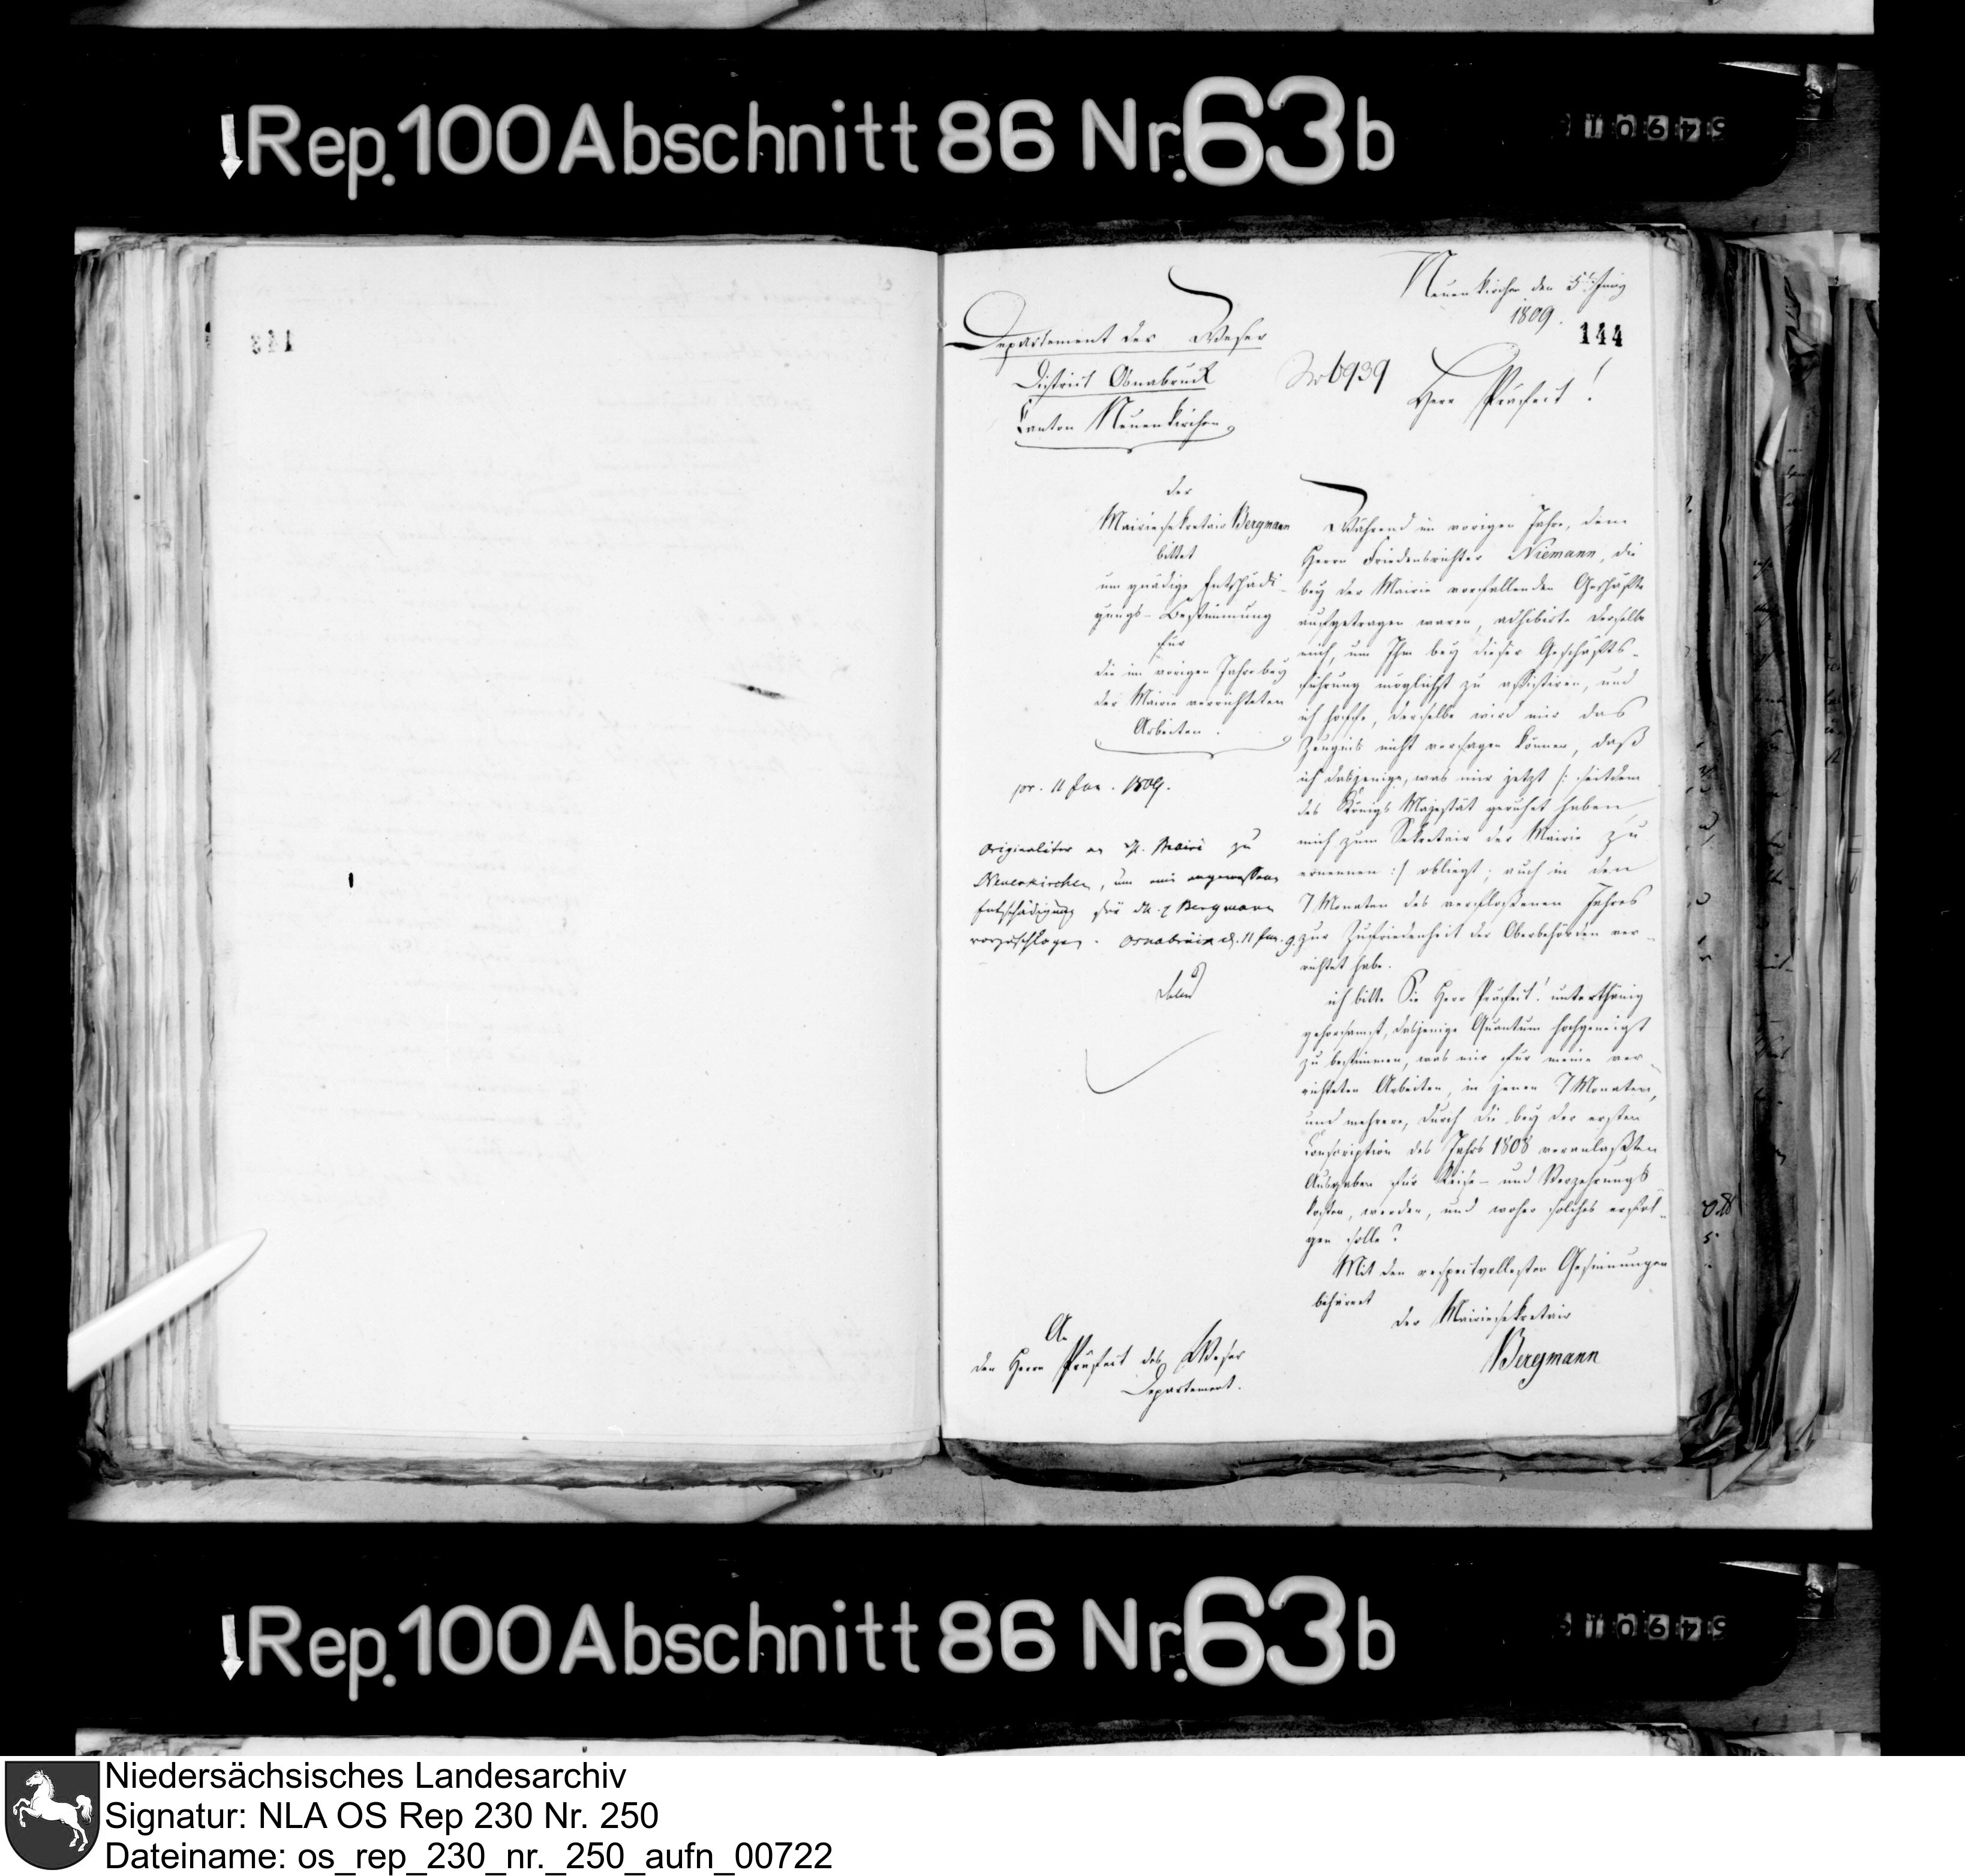 Rep. 100 Abschnitt 86 Nr. 63b
144
Neuenkirchen den 5ten
1809.
Departement der Weser
District Osnabruck
Canton Neuenkirchen
No 6939
Herr Präfect!
der
Mairiesekretair Bergmann
bittet
um gnädige Entschädi-
gungs-Bestimmung
für
die im vorigen Jahre bey
der Mairie verrichteten
Arbeiten.
pr. 11 Jan. 1809.
Originaliter an Mairie zu
Neuenkirchen, um eine angemessene
Entschädigung für Bergmann
vorzuschlagen. Osnabrück d. 11 Jan. 9.
Während im vorigen Jahre, dem
Herrn Friedensrichter Niemann, die
bey der Mairie vorfallenden Geschäfte
aufgetragen waren, adhibirte derselbe
mich, um Ihm bey dieser Geschäfts-
führung möglichst zu assistiren, und
ich hoffe, derselbe wird mir das
Zeugnis nicht versagen können, daß
ich dasjenige, was mir jetzt /: seitdem
des Königs Majestät geruhet haben,
mich zum Sekretair der Mairie zu
ernennen :/ obliegt; auch in den
7 Monaten des verfloßenen Jahres
zur Zufriedenheit der Oberbehörden ver-
richtet habe.
ich bitte Sie Herr Präfect! unterthänig
gehorsamst, dasjenige Quantum hochgeneigt
zu bestimmen, was mir für meine ver-
richteten Arbeiten, in jenen 7 Monaten,
und mehrere, durch die bey der ersten
Conscription des Jahrs 1808 veranlaßten
Ausgaben für Reise- und Verzehrungs
kosten, werden, und woher solches
solle?
Mit den respectvollesten Gesinnungen
beharret
der Mairiesekretair
Bergmann
An
den Herrn Präfect des Weser
Departement.
Rep. 100 Abschnitt 86 Nr. 63b
Niedersächsisches Landesarchiv
Signatur: NLA OS Rep 230 Nr. 250
Dateiname: os_rep_230_nr._250_aufn_00722